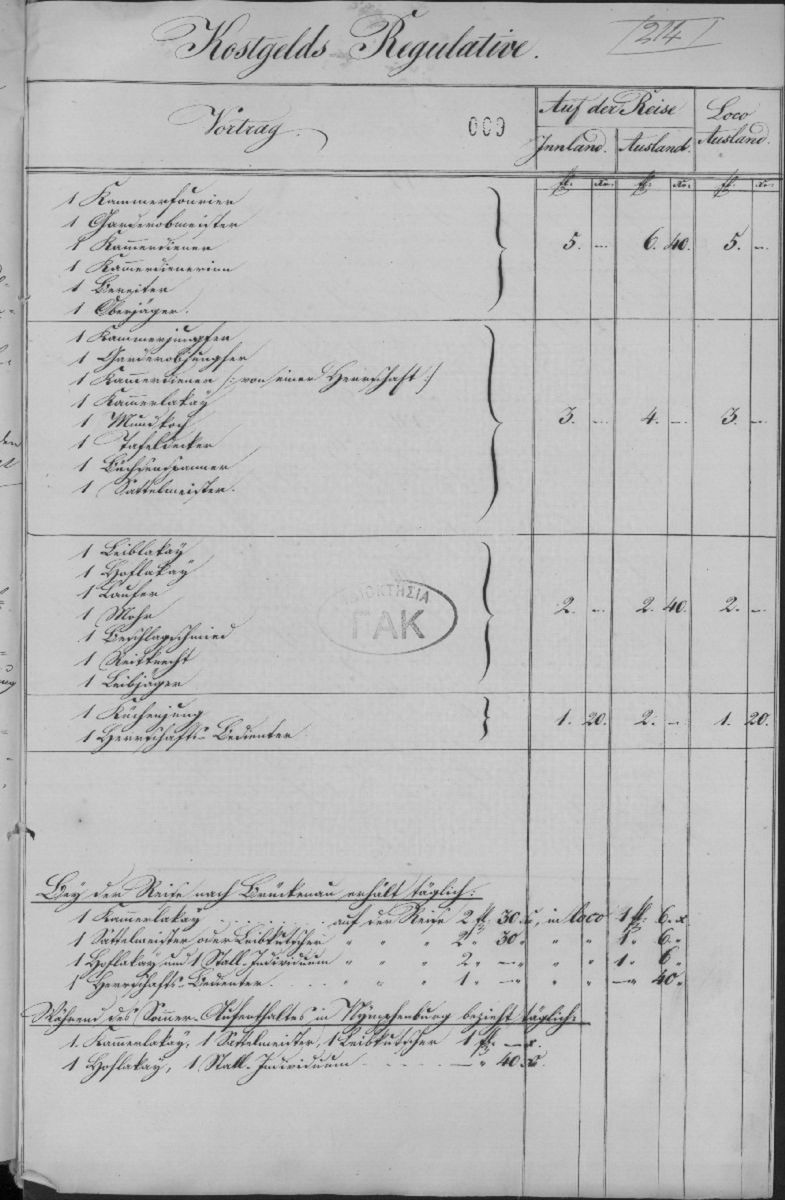 Kostgelds Regulative.
214
Vortrag.
009
Auf der Reise
Loco Ausland.
Innland. Ausland.
fl: Xr: fl: Xr: fl: Xr:
1 Kammerfourier
1 Garderobmeister
1 Kammerdiener 5. — 6. 40. 5. —
1 Kammerdienerinn
1 Bereiter
1 Oberjäger.
1 Kammerjungfer
1 Garderobjungfer
1 Kammerdiener /: von einer Herrschaft :/
1 Kammerlakay
1 Mundkoch 3. — 4. — 3. —
1 Tafeldecker
1 Büchsenspanner
1 Sattelmeister.
1 Leiblakay
1 Hoflakay
1 Laufer
1 Mohr 2. — 2. 40. 2. —
1 Beschlagschmied
1 Reitknecht
1 Leibjäger
ΙΔΙΟΚΤΗΣΙΑ
ΓΑΚ
1 Küchenjung 1. 20. 2. — 1. 20.
1 Herrschafts-Bedienter
Bey der Reise nach Brückenau erhält täglich:
1 Kammerlakay . . . . auf der Reise 2 fl 30 x, in loco 1 fl 6. x
1 Sattelmeister oder Leibkutscher " " " 2 " 30 " " " 1 " 6. "
1 Hoflakay und 1 Stall-Individuum " " " 2 " — " " " 1 " 6 "
1 Herrschafts-Bedienter . . . " " " 1 " — " " " — " 40 "
Während des Sommer-Aufenthaltes in Nymphenburg bezieht täglich:
1 Kammerlakay, 1 Sattelmeister, 1 Leibkutscher 1 fl — x.
1 Hoflakay, 1 Stall-Individuum . . . . — " 40 x